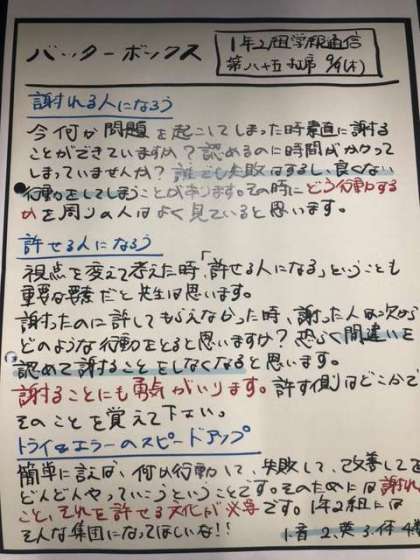 バッターボックス
1年2組学級通信
第八十五打席 9/4(木)
謝れる人になろう
今何か問題を起こしてしまった時素直に謝る
ことができていますか?認めるのに時間がかかって
しまっていませんか?誰でも失敗はするし、良くない
行動をしてしまうことがあります。その時にどう行動する
かを周りの人はよく見ていると思います。
許せる人になろう
視点を変えて考えた時、「許せる人になる」ということも
重要な要素だと先生は思います。
謝ったのに許してもらえなかった時、謝った人は次から
どのような行動をとると思いますか?恐らく間違いを
認めて謝ることをしなくなると思います。
謝ることにも勇気がいります。許す側はどこかで
そのことを覚えて下さい。
トライ&エラーのスピードアップ
簡単に言えば、何か行動して、失敗して、改善して
どんどんやっていこうということです。そのためには謝れ
こと、それを許せる文化が必要です。1年2組には
そんな集団になってほしいな!!
1.音 2.英 3.体